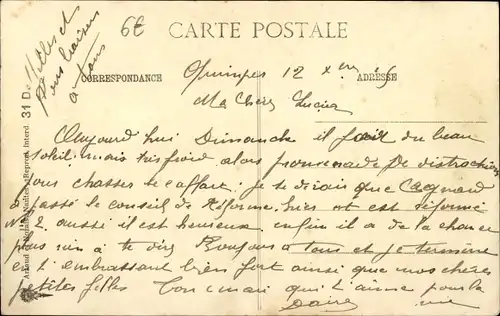 6€
CARTE POSTALE
CORRESPONDANCE
ADRESSE
filles et
bons baisers
à tous
Quimper 12 Xbre
Ma Chère Lucien
Aujourd hui Dimanche il fait du beau
soleil mais tris froid alors promenade De distraction
chasser le caffart. je te dirais que Cagnard
passé le conseil de Réforme hier et est réformé
N 2 aussi il est heureux enfin il a de la chance
plus rien à te dire Toujours à tous et je termine
en t'embrassant bien fort ainsi que mes chères
petites filles Ton mari qui t'aime pour la
vie